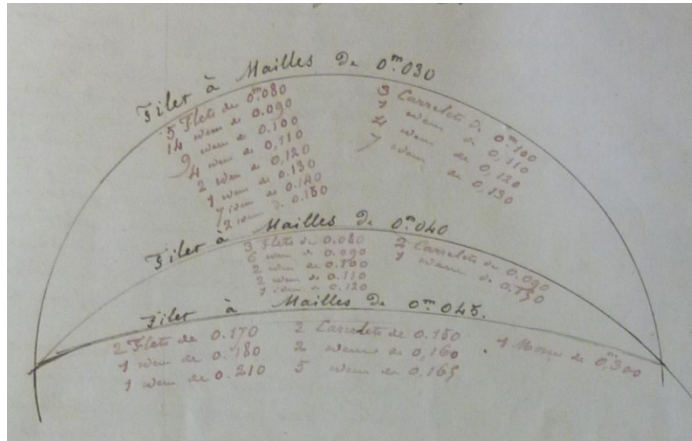 Filet à Mailles De 0m.030
5 Flets de 0m.080
14 idem de 0.090
9 idem de 0.100
4 idem de 0,110
2 idem de 0,120
1 idem de 0.130
7 idem de 0.140
2 idem de 0.150
3 Carrelets de 0m.100
1 idem de 0,110
4 idem de 0,120
7 idem de 0,130
Filet à Mailles De 0m.040
3 Flets de 0.080
6 idem de 0.090
2 idem de 0.100
2 idem de 0.110
1 idem de 0.120
2 Carrelets de 0.090
1 idem de 0.150
Filet à Mailles De 0m.045.
2 Flets de 0.170
1 idem de 0.180
1 idem de 0.210
2 Carrelets de 0.150
2 idem de 0,160
5 idem de 0,165
1 de 0,m300